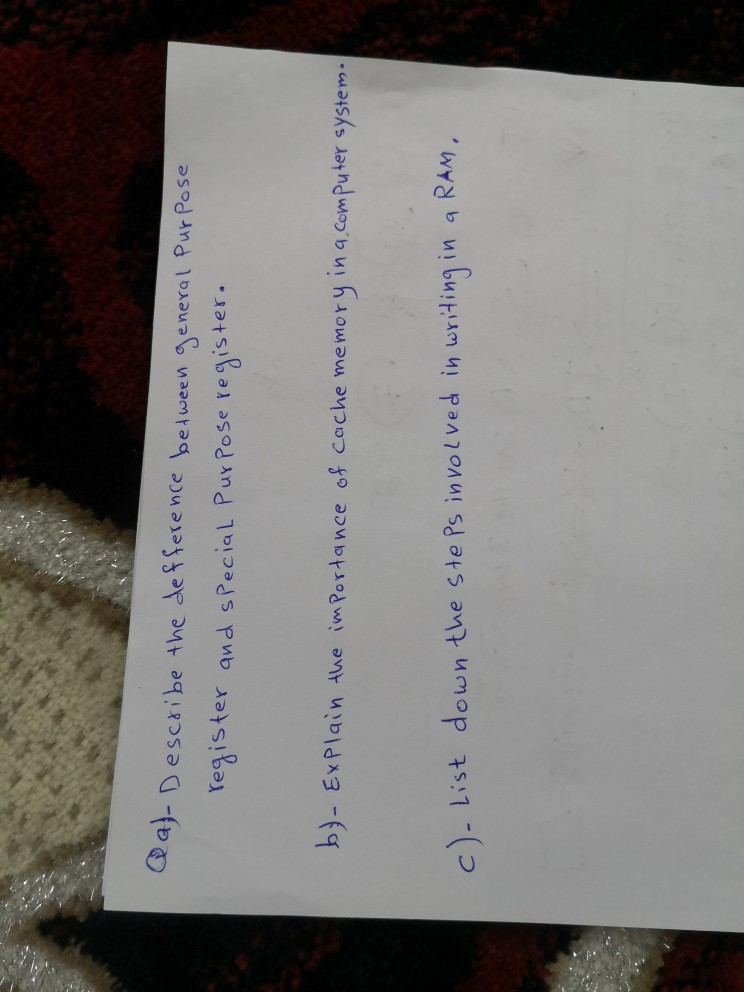 Q a)- Describe the defference between general Purpose
register and special Purpose register.
b)- Explain the importance of cache memory in a computer system.
c)- List down the steps involved in writing in a RAM.